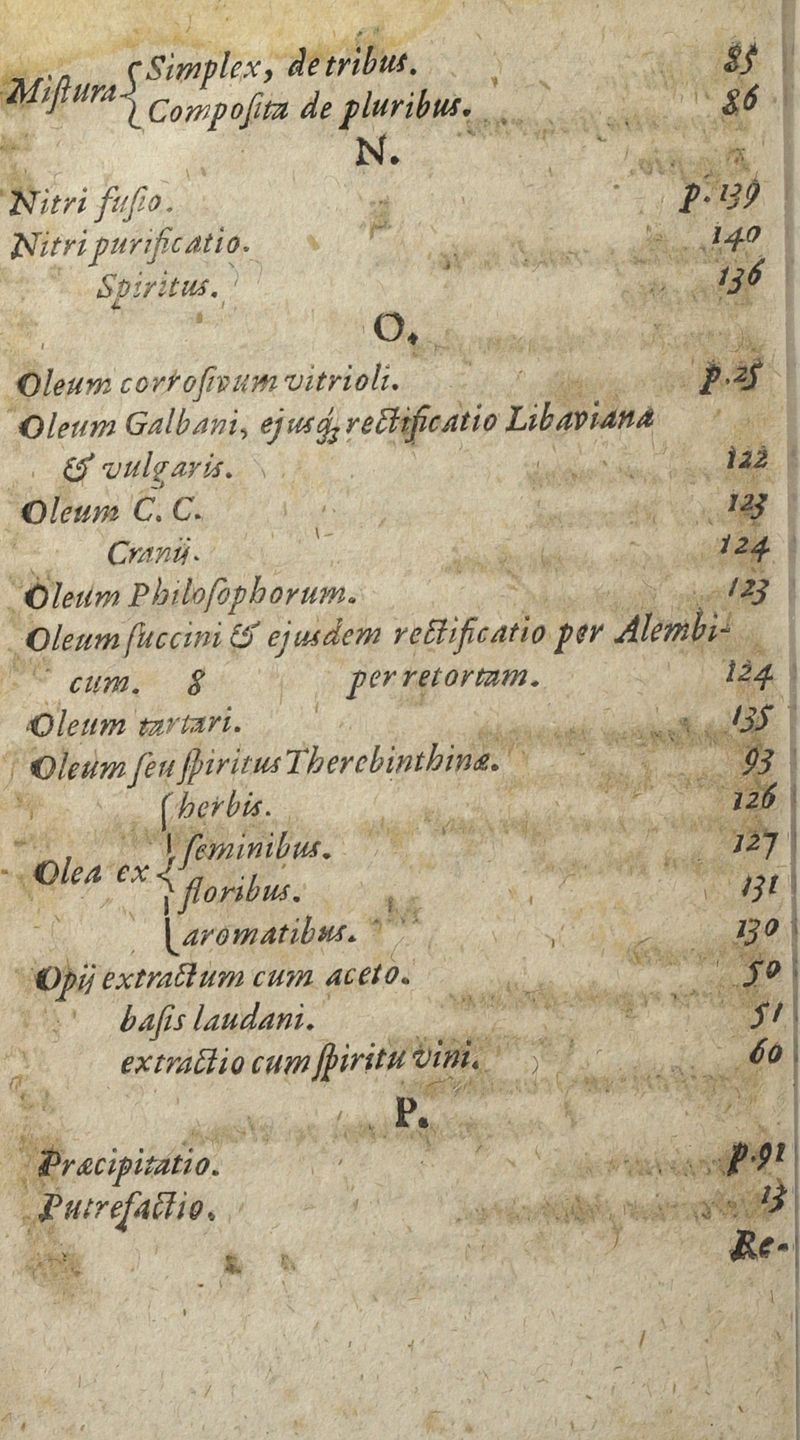 Miſtura { Simplex, de tribus. 85
Compoſita de pluribus. 86
N.
Nitri fuſio. p. 139
Nitri purificatio. 140
Spiritus. 136
O.
Oleum corroſivum vitrioli. p. 25
Oleum Galbani, ejusq; rectificatio Libaviana
& vulgaris. 122
Oleum C. C. 123
Cranij. 124
Oleum Philoſophorum. 123
Oleum ſuccini & ejusdem rectificatio per Alembi-
cum. & per retortam. 124
Oleum tartari. 135
Oleum ſeu ſpiritus Therebinthinæ. 93
Olea ex { herbis. 126
ſeminibus. 127
floribus. 131
aromatibus. 130
Opij extractum cum aceto. 50
baſis laudani. 51
extractio cum ſpiritu vini. 60
P.
Præcipitatio. p. 91
Putrefactio. 13
Re-